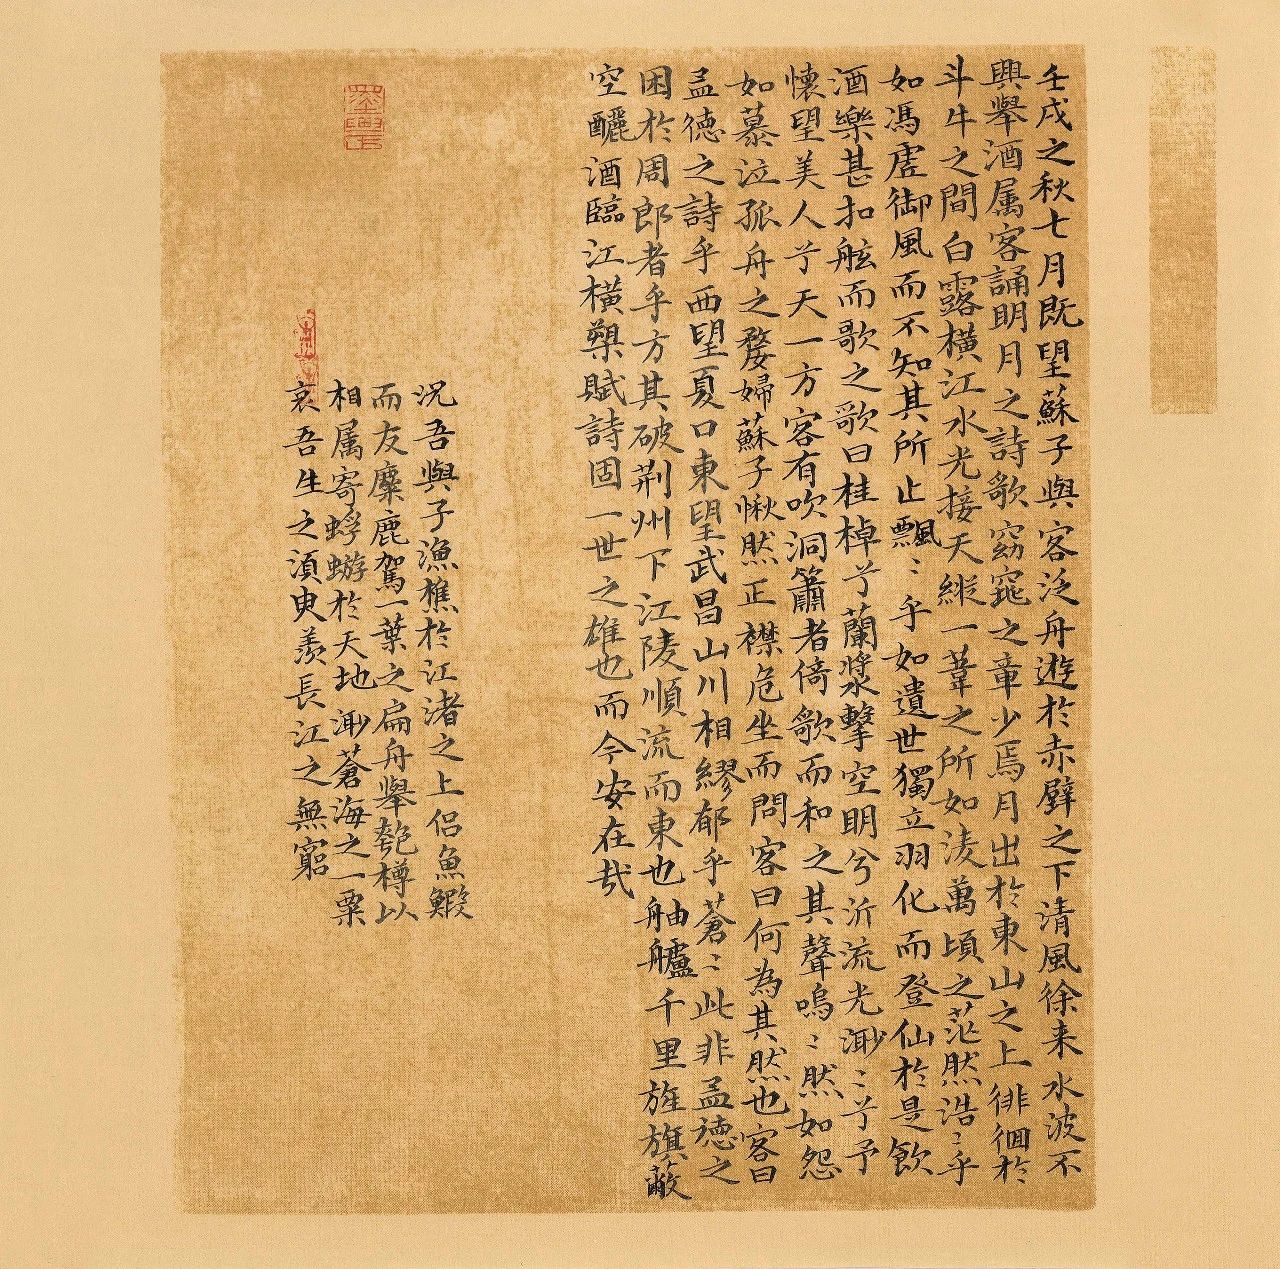 壬戌之秋七月既望蘇子與客泛舟遊於赤壁之下清風徐来水波不
興舉酒属客誦明月之詩歌窈窕之章少焉月出於東山之上徘徊於
斗牛之間白露橫江水光接天縱一葦之所如淩萬頃之茫然浩〻乎
如馮虛御風而不知其所止飄〻乎如遺世獨立羽化而登仙於是飲
酒樂甚扣舷而歌之歌曰桂棹兮蘭槳擊空明兮泝流光渺〻兮予
懷望美人兮天一方客有吹洞簫者倚歌而和之其聲嗚〻然如怨
如慕泣孤舟之嫠婦蘇子愀然正襟危坐而問客曰何為其然也客曰
孟德之詩乎西望夏口東望武昌山川相繆郁乎蒼〻此非孟德之
困於周郎者乎方其破荆州下江陵順流而東也舳艫千里旌旗蔽
空釃酒臨江橫槊賦詩固一世之雄也而今安在哉
況吾與子漁樵於江渚之上侶魚鰕
而友麋鹿駕一葉之扁舟舉匏樽以
相属寄蜉蝣於天地渺蒼海之一粟
哀吾生之須臾羨長江之無窮